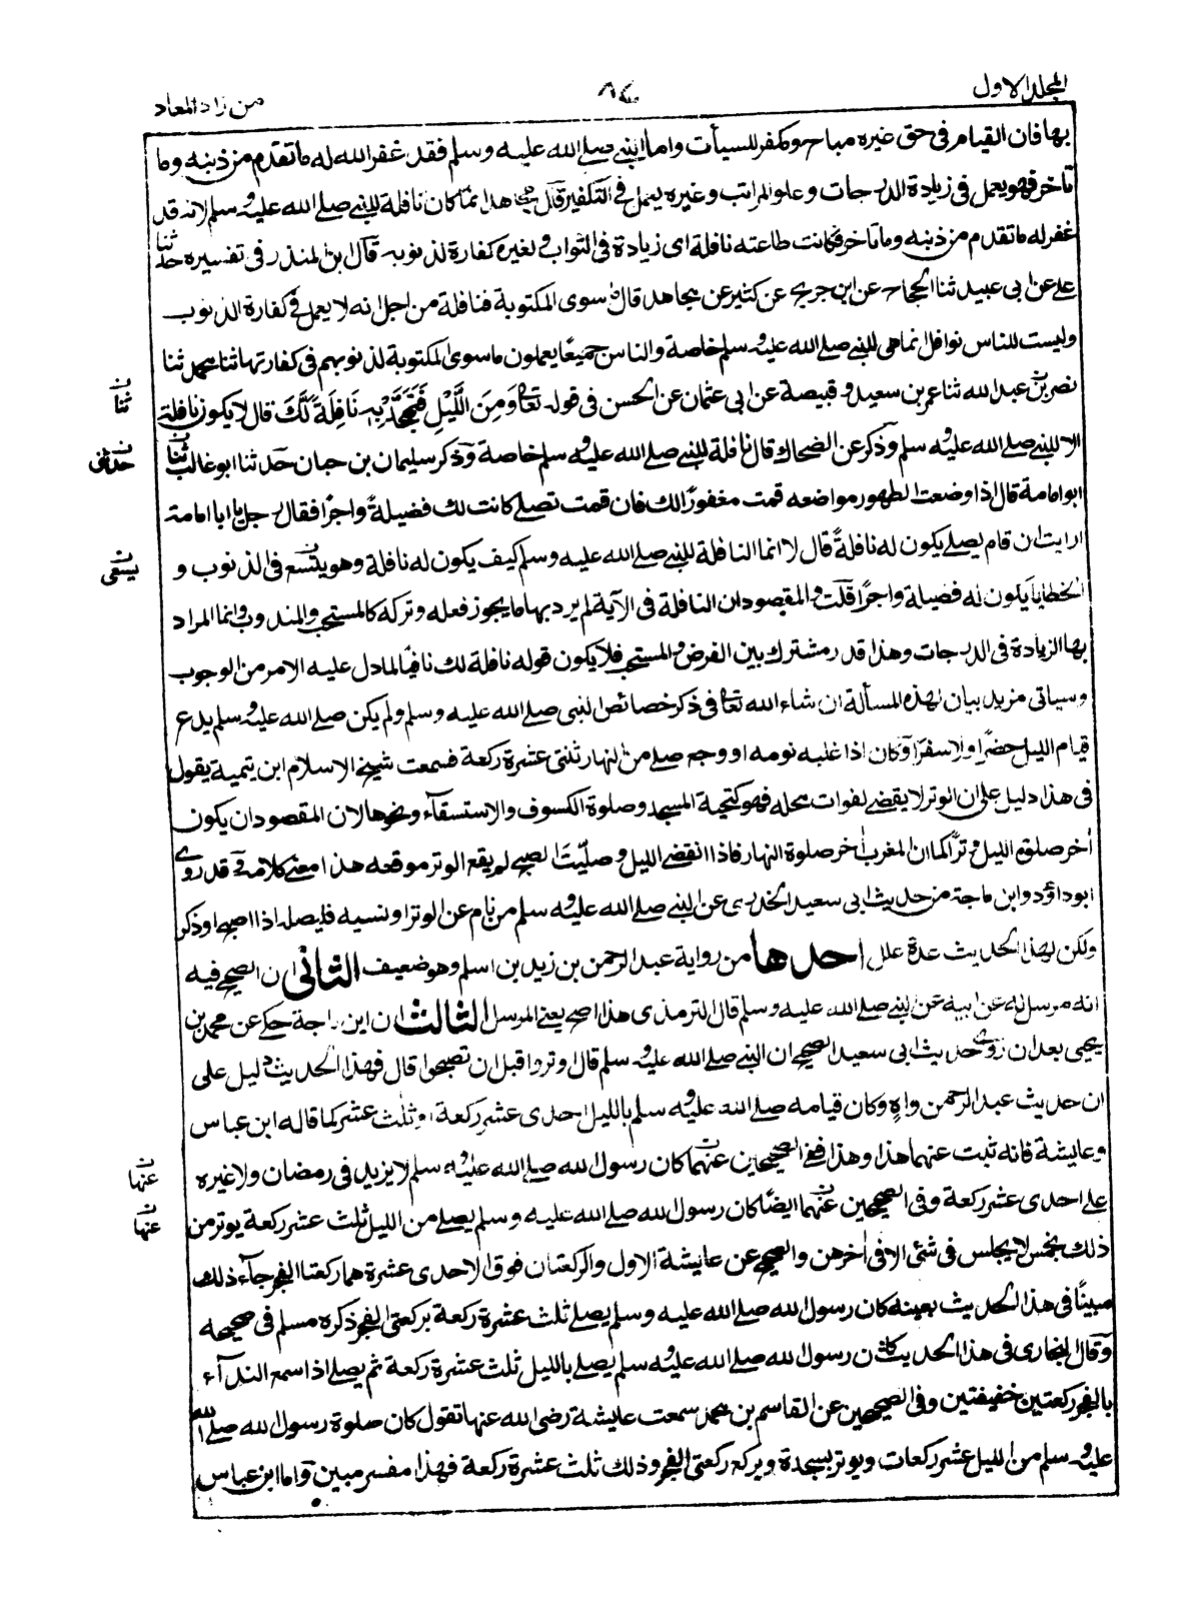 المجلد الاول
٨٤
من زاد المعاد
بها فان القيام فى حق غيره مباح ومكفر للسيأت واما النبي صلے الله عليه وسلم فقد غفر الله له ما تقدم من ذنبه وما
تاخر فهو يعمل فى زيادة الدرجات وعلو المراتب وغيره يعمل فى التكفير قال هذا انما كان نافلة للنبي صلے الله عليه وسلم لانه قد
غفر له ما تقدم من ذنبه وما تاخر فكانت طاعته نافلة اى زيادة فى الثواب ولغيره كفارة لذنوبه قال ابن المنذر فى تفسيره حدثنا
على عن ابى عبيد ثنا الحجاج عن ابن جريج عن كثير عن مجاهد قال ما سوى المكتوبة فنافلة من اجل انه لا يعمل فى كفارة الذنوب
وليست للناس نوافل انما هى للنبي صلے الله عليه وسلم خاصة والناس جميعًا يعملون ما سوى المكتوبة لذنوبهم فى كفارتها ثنا محمد ثنا
نصر بن عبد الله ثنا عمر بن سعيد وقبيصة عن ابى عثمان عن الحسن فى قوله تعالى وَمِنَ اللَّيْلِ فَتَهَجَّدْ بِهِ نَافِلَةً لَّكَ قال لا يكون نافلة
ثنا
الا للنبي صلے الله عليه وسلم وذكر عن الضحاك قال نافلة للنبي صلے الله عليه وسلم خاصة وذكر سليمان بن حبان حدثنا ابو غالب ثنا
حدثنى
ابو امامة قال اذا وضعت الطهور مواضعه قمت مغفورًا لك فان قمت تصلے كانت لك فضيلةً واجرًا فقال رجل يا ابا امامة
ارايت ان قام يصلے يكون له نافلةً قال لا انما النافلة للنبي صلے الله عليه وسلم كيف يكون له نافلة وهو يتسع فى الذنوب و
يسعى
الخطايا يكون له فضيلة واجرًا قلت والمقصود ان النافلة فى الآية لم يرد بها ما يجوز فعله وتركه كالمستحب والمندوب وانما المراد
بها الزيادة فى الدرجات وهذا قدر مشترك بين الفرض والمستحب فلا يكون قوله نافلة لك نافيًا لما دل عليه الامر من الوجوب
وسياتى مزيد بيان لهذه المسألة ان شاء الله تعالى فى ذكر خصائص النبى صلى الله عليه وسلم ولم يكن صلے الله عليه وسلم يدع
قيام الليل حضرًا ولا سفرًا وكان اذا غلبه نومه او وجع صلے من النهار ثنتى عشرة ركعة فسمعت شيخ الاسلام ابن تيمية يقول
فى هذا دليل على ان الوتر لا يقضے لفوات محله فهو كتحية المسجد وصلوة الكسوف والاستسقآء ونحوها لان المقصود ان يكون
أخر صلوة الليل وترًا كما ان المغرب أخر صلوة النهار فاذا انقضے الليل وصلّيت الصبح لم يقع الوتر موقعه هذا معنى كلامه وقد روى
ابو داؤد وابن ماجة من حديث ابى سعيد الخدرى عن النبي صلے الله عليه وسلم من نام عن الوتر او نسيه فليصله اذا اصبح او ذكر
ولكن لهذا الحديث عدة علل احدها من رواية عبد الرحمن بن زيد بن اسلم وهو ضعيف الثانى ان الصحيح فيه
انه مرسل له عن ابيه عن النبي صلے الله عليه وسلم قال الترمذى هذا اصح يعنے المرسل الثالث ان ابن ماجة حكے عن محمد بن
يحيى بعد ان روى حديث ابى سعيد الصحيح ان النبي صلے الله عليه وسلم قال اوتروا قبل ان تصبحوا قال فهذا الحديث دليل على
ان حديث عبد الرحمن واهٍ وكان قيامه صلے الله عليه وسلم بالليل احدى عشر ركعة او ثلث عشر كما قاله ابن عباس
وعايشة فانه ثبت عنهما هذا وهذا ففے الصحيحين عنهما كان رسول الله صلے الله عليه وسلم لا يزيد فى رمضان ولا غيره
عنها
علے احدى عشر ركعة وفى الصحيحين عنهما ايضًا كان رسول الله صلے الله عليه وسلم يصلے من الليل ثلث عشر ركعة يوتر من
عنها
ذلك بخمس لا يجلس فى شئ الا فى أخرهن والصحيح عن عايشة الاول والركعتان فوق الاحدى عشرة هما ركعتا الفجر جآء ذلك
مبينًا فى هذا الحديث بعينه كان رسول الله صلے الله عليه وسلم يصلے ثلث عشرة ركعة بركعتى الفجر ذكره مسلم فى صحيحه
وقال البخارى فى هذا الحديث كان رسول الله صلے الله عليه وسلم يصلے بالليل ثلث عشرة ركعة ثم يصلے اذا سمع الندآء
بالفجر ركعتين خفيفتين وفى الصحيحين عن القاسم بن محمد سمعت عايشة رضى الله عنها تقول كان صلوة رسول الله صلے الله
عليه وسلم من الليل عشر ركعات ويوتر بسجدة ويركع ركعتى الفجر وذلك ثلث عشرة ركعة فهذا مفسر مبين واما ابن عباس